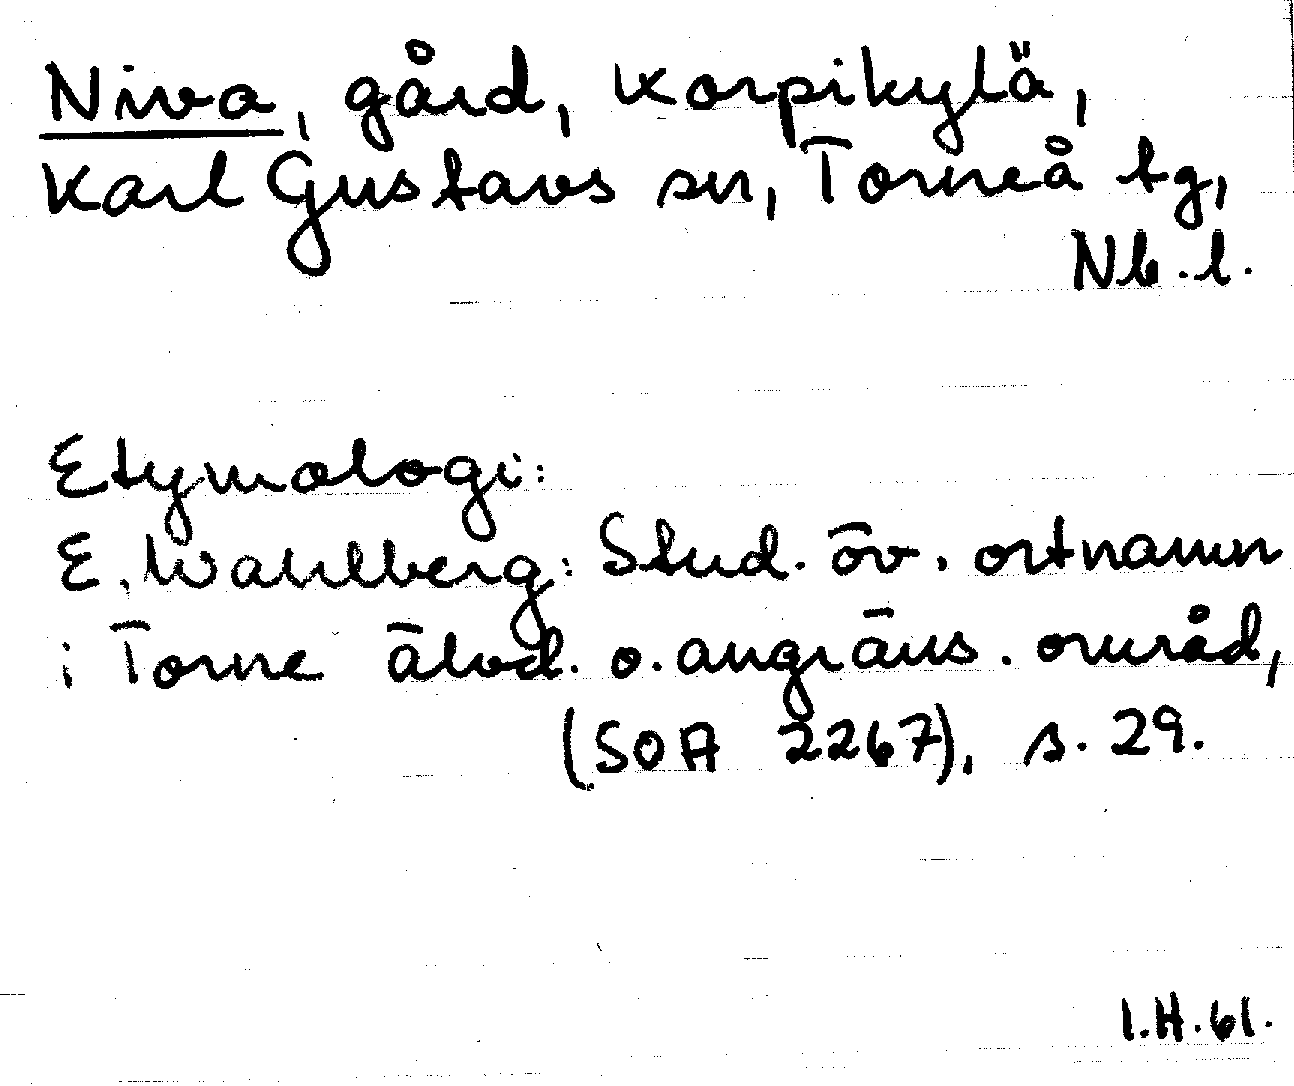 Niva, gård, Korpikylä,
Karl Gustavs sn, Torneå tg,
Nb.l.
Etymologi:
E. Wahlberg: Stud. öv. ortnamn
i Torne älvd. o. angräns. område,
(SOA 2267), s. 29.
I.H.61.